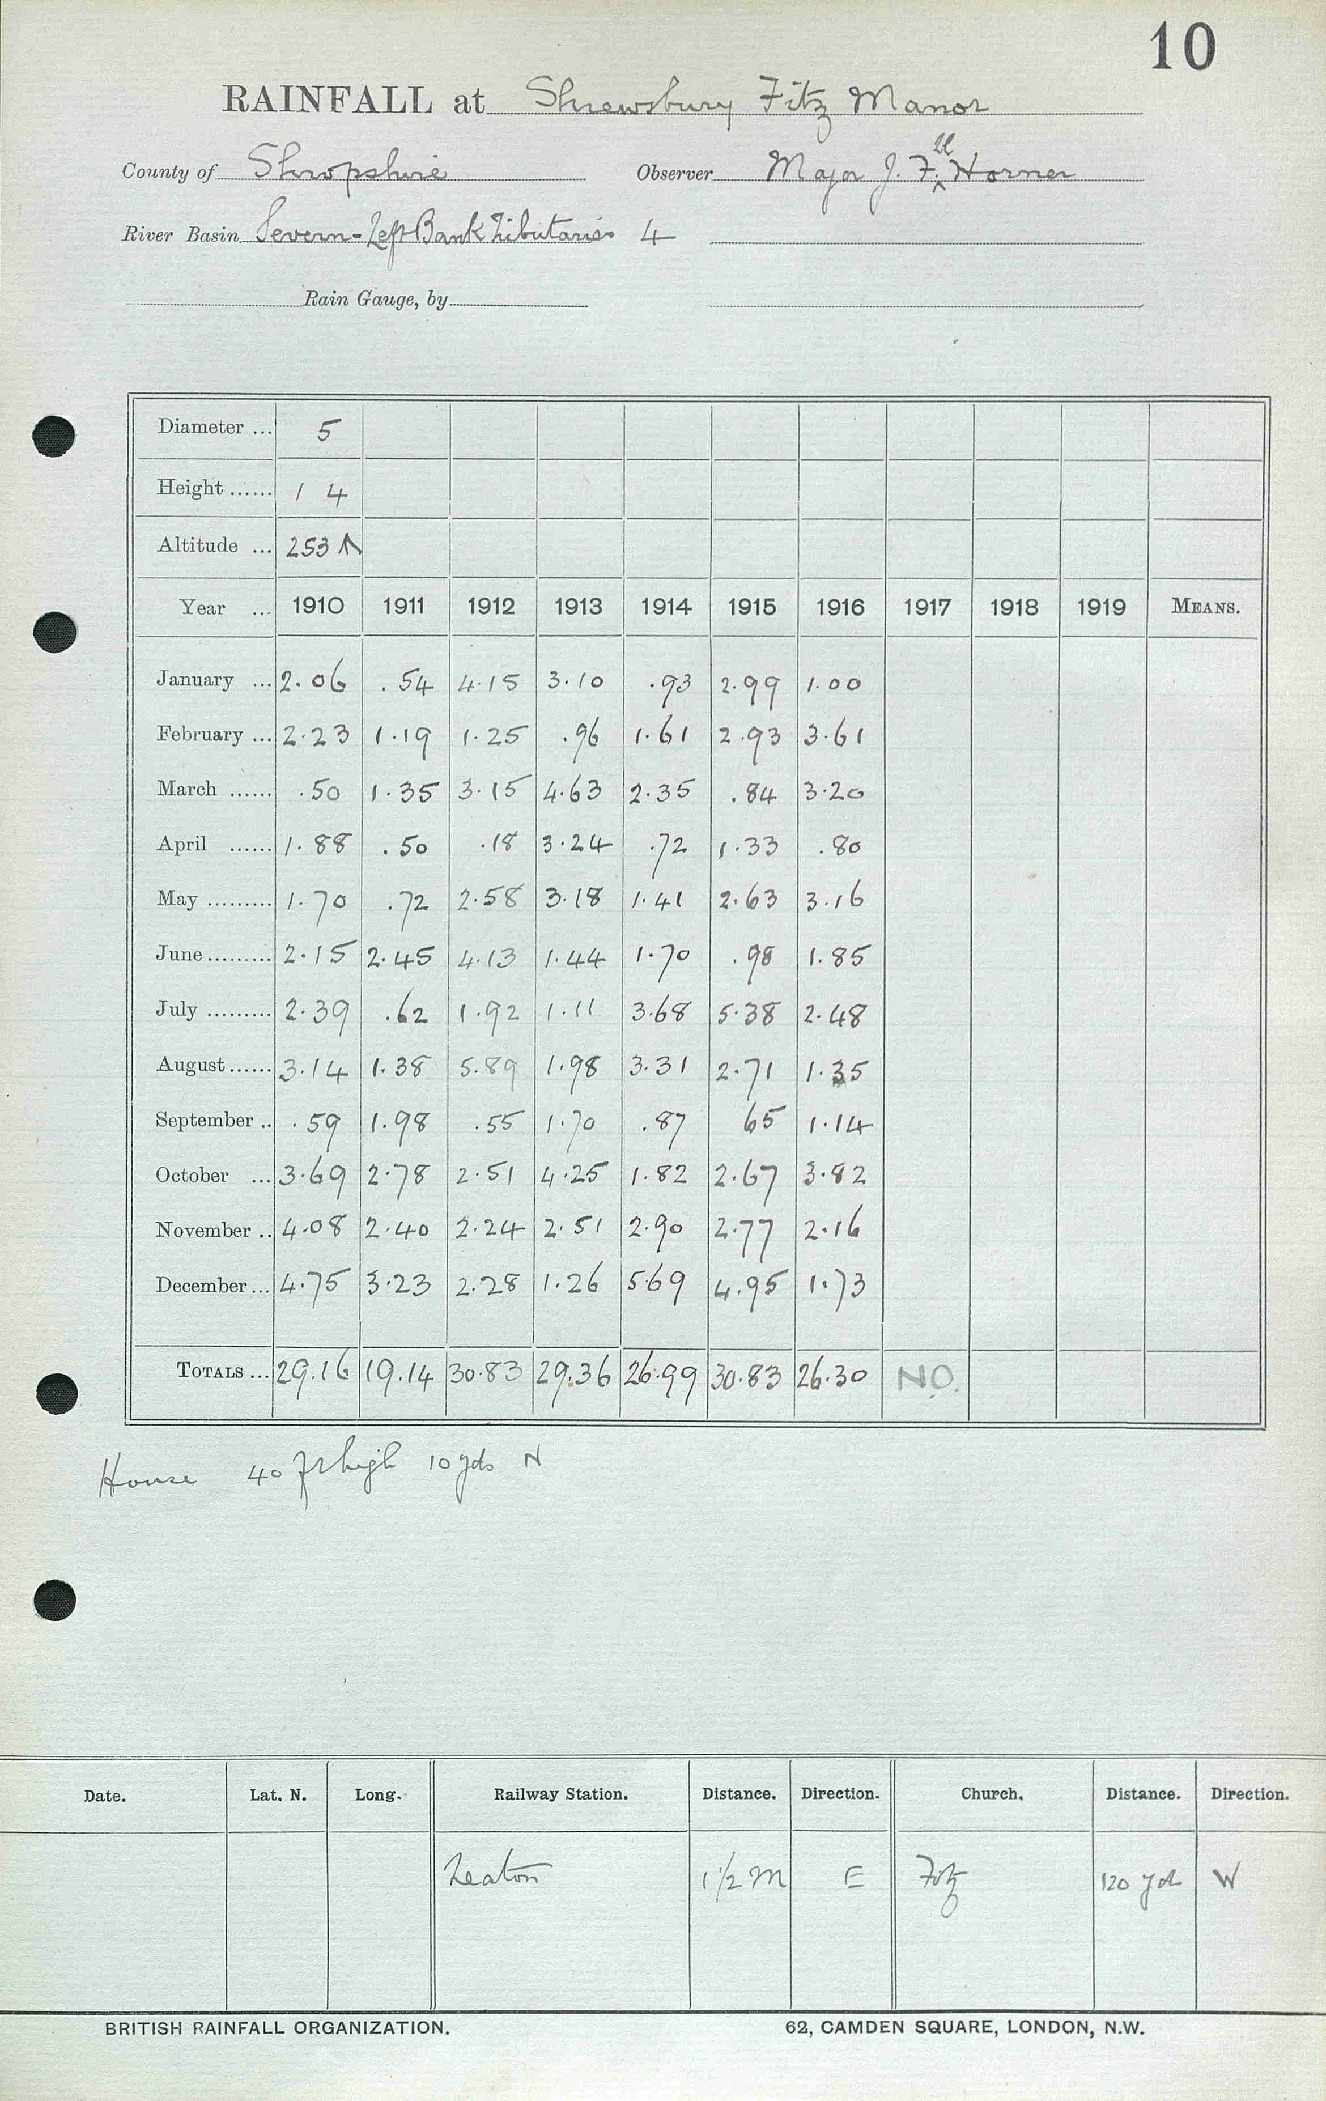 10
RAINFALL at Shrewsbury Fitz Manor
County of Shropshire Observer Major J. Fll. Horner
River Basin Severn - Left Bank Tributaries 4
Rain Gauge, by
Diameter ... 5
Height ...... 1 4
Altitude ... 253
Year ... 1910 1911 1912 1913 1914 1915 1916 1917 1918 1919 MEANS.
January ... 2.06 .54 4.15 3.10 .93 2.99 1.00
February ... 2.23 1.19 1.25 .96 1.61 2.93 3.61
March ...... .50 1.35 3.15 4.63 2.35 .84 3.20
April ...... 1.88 .50 .18 3.24 .72 1.33 .80
May ......... 1.70 .72 2.58 3.18 1.41 2.63 3.16
June ......... 2.15 2.45 4.13 1.44 1.70 .98 1.85
July ......... 2.39 .62 1.92 1.11 3.68 5.38 2.48
August ...... 3.14 1.38 5.89 1.98 3.31 2.71 1.35
September .. .59 1.98 .55 1.70 .87 65 1.14
October ... 3.69 2.78 2.51 4.25 1.82 2.67 3.82
November .. 4.08 2.40 2.24 2.51 2.90 2.77 2.16
December ... 4.75 3.23 2.28 1.26 5.69 4.95 1.73
TOTALS ... 29.16 19.14 30.83 29.36 26.99 30.83 26.30 NO.
House 40 ft high 10 yds N
Date. Lat. N. Long. Railway Station. Distance. Direction. Church. Distance. Direction.
Leaton 1 1/2 m E Fitz 120 yds W
BRITISH RAINFALL ORGANIZATION. 62, CAMDEN SQUARE, LONDON, N.W.